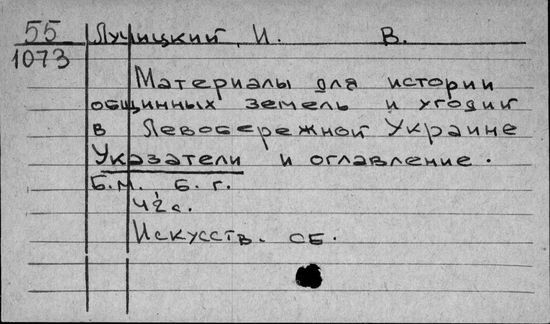 55 Лучицкий, И. В.
1073
Материалы для истории
общинных земель и угодий
в Левобережной Украине
Указатели и оглавление.
Б.м. б.г.
42 с.
Искусств. сб.